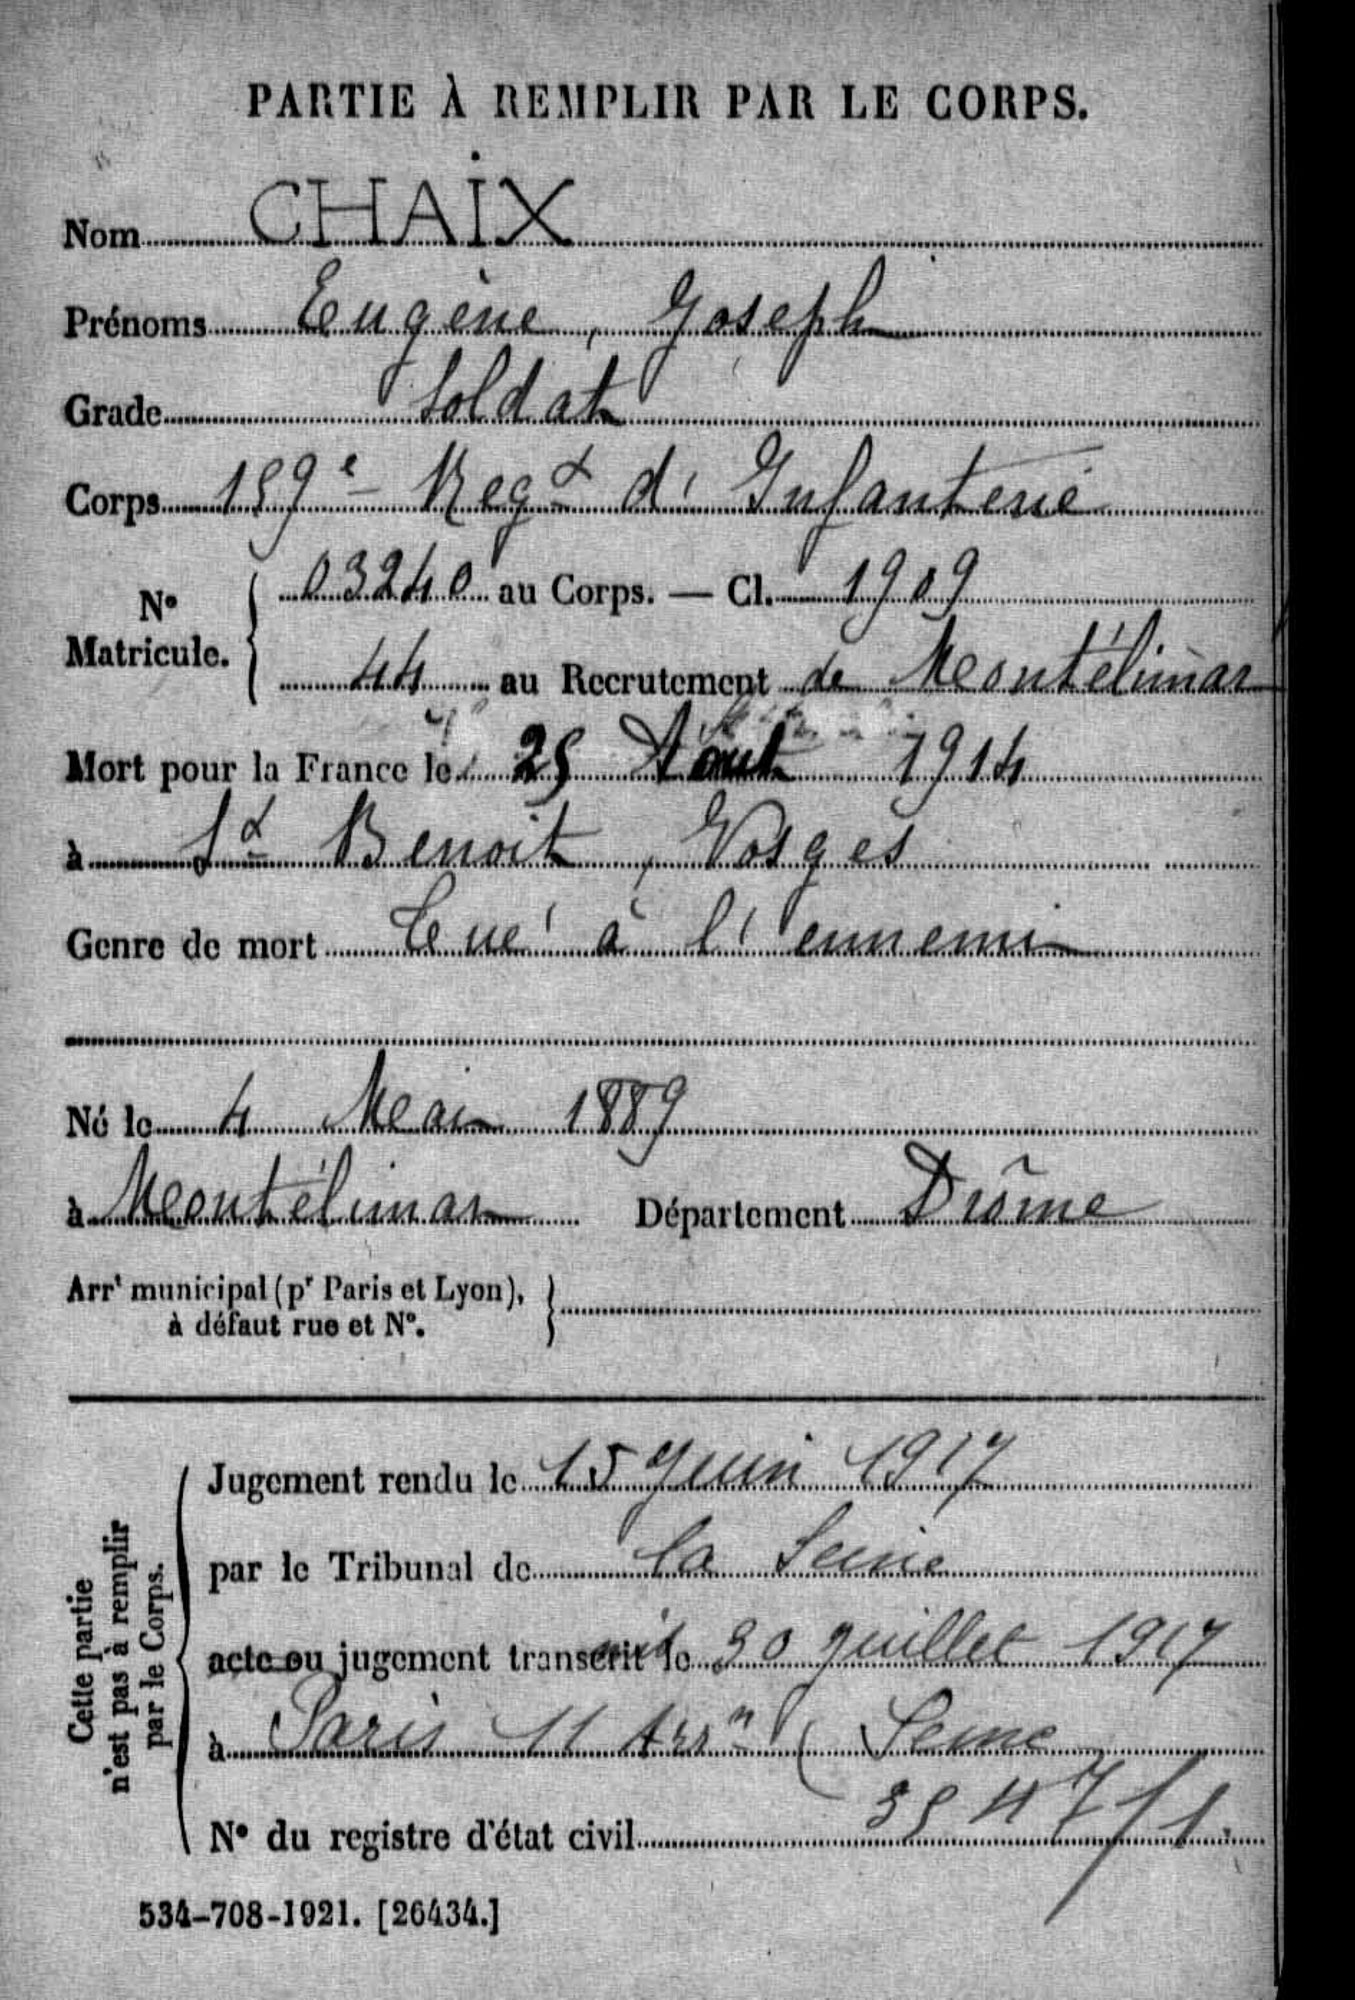 PARTIE À REMPLIR PAR LE CORPS.
Nom CHAIX
Prénoms Eugène, Joseph
Grade Soldat
Corps 159e Regt d'Infanterie
No Matricule. { 03240 au Corps. — Cl. 1909
44 au Recrutement de Montélimar
Mort pour la France le 25 Août 1914
à St Benoit, Vosges
Genre de mort Tué à l'ennemi
Né le 4 Mai 1889
à Montélimar Département Drôme
Arrt municipal (pr Paris et Lyon), à défaut rue et No. }
Cette partie n'est pas à remplir par le Corps.
Jugement rendu le 15 Juin 1917
par le Tribunal de la Seine
acte ou jugement transcrit le 30 Juillet 1917
à Paris 11 Arrt (Seine
No du registre d'état civil
534-708-1921. [26434.]